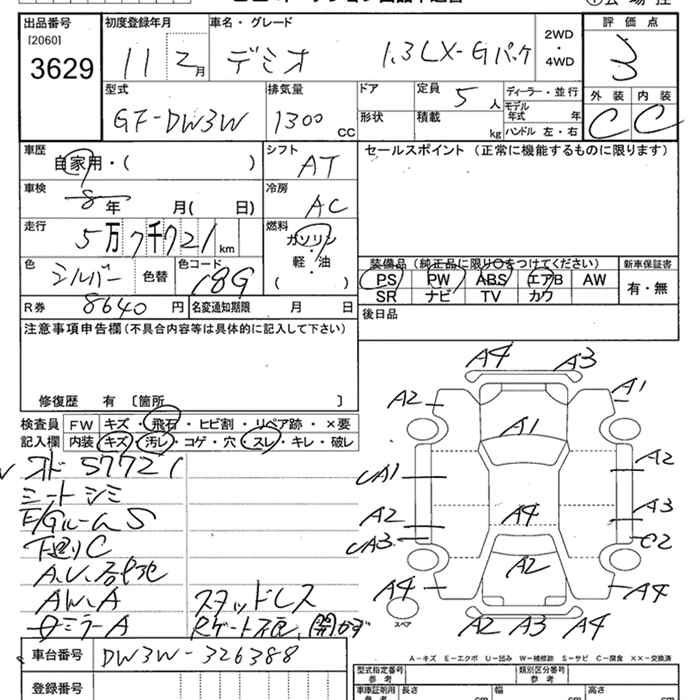 出品番号
[2060]
3629
初度登録年月
11 2月
車名・グレード
デミオ 1.3 LX-Gパック
2WD
・
4WD
評価点
3
型式
GF-DW3W
排気量
1300 CC
ドア
形状
定員
5人
積載
kg
ディーラー・並行
モデル年式 年
ハンドル 左・右
外装 内装
C C
車歴
自家用・( )
シフト
AT
セールスポイント (正常に機能するものに限ります)
車検
8年 月( 日)
冷房
AC
走行
5万7千721km
燃料
ガソリン
軽・油
( )
色
シルバー
色替
色コード
18G
装備品 (純正品に限り○をつけてください)
PS PW ABS エアB AW
SR ナビ TV カワ
新車保証書
有・無
R券 8640円
名変通知期限 月 日
後日品
注意事項申告欄 (不具合内容等は具体的に記入して下さい)
修復歴 有 〔箇所 〕
検査員
記入欄
FW キズ・飛石・ヒビ割・リペア跡・×要
内装 キズ・汚レ・コゲ・穴・スレ・キレ・破レ
オド 57721
シートシミ
E/GルームS
下廻りC
AW.A スタッドレス
ミラーA
車台番号 DW3W-326388
登録番号
A4 A3
A2 A1
A1
A2
A1
A2 A4 A3
A3 C2
A2
A4 A4
スペア
A2 A3 A4
A−キズ E−エクボ U−凹み W−補修跡 S−サビ C−腐食 ××−交換済
型式指定番号
参考
類別区分番号
参考
車庫証明用
参考
長さ 幅 高さ